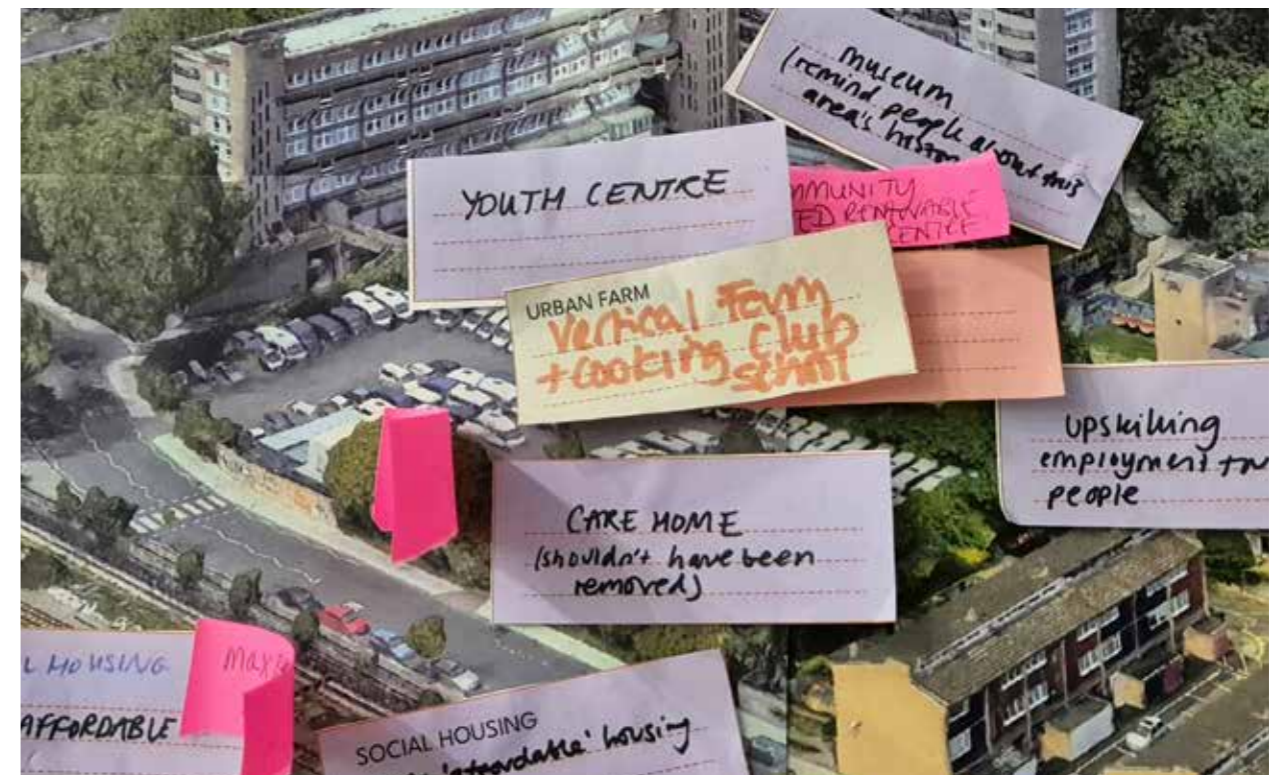 museum
(remind people about this
area's
YOUTH CENTRE
MMUNITY
ED RENEWABLE
CENTRE
URBAN FARM
Vertical Farm
+ cooking Club
school
upskilling
employment for
people
CARE HOME
(shouldn't have been
removed)
L HOUSING
AFFORDABLE
SOCIAL HOUSING
housing